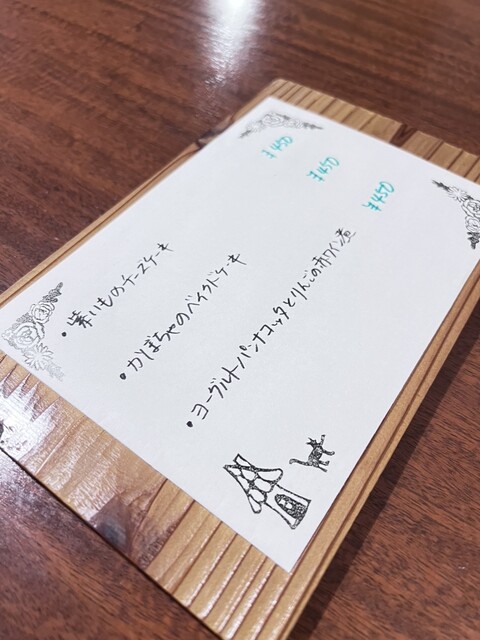 ・紫いものチーズケーキ ¥450
・かぼちゃのベイクドケーキ ¥450
・ヨーグルトパンナコッタとりんごの赤ワイン煮 ¥450